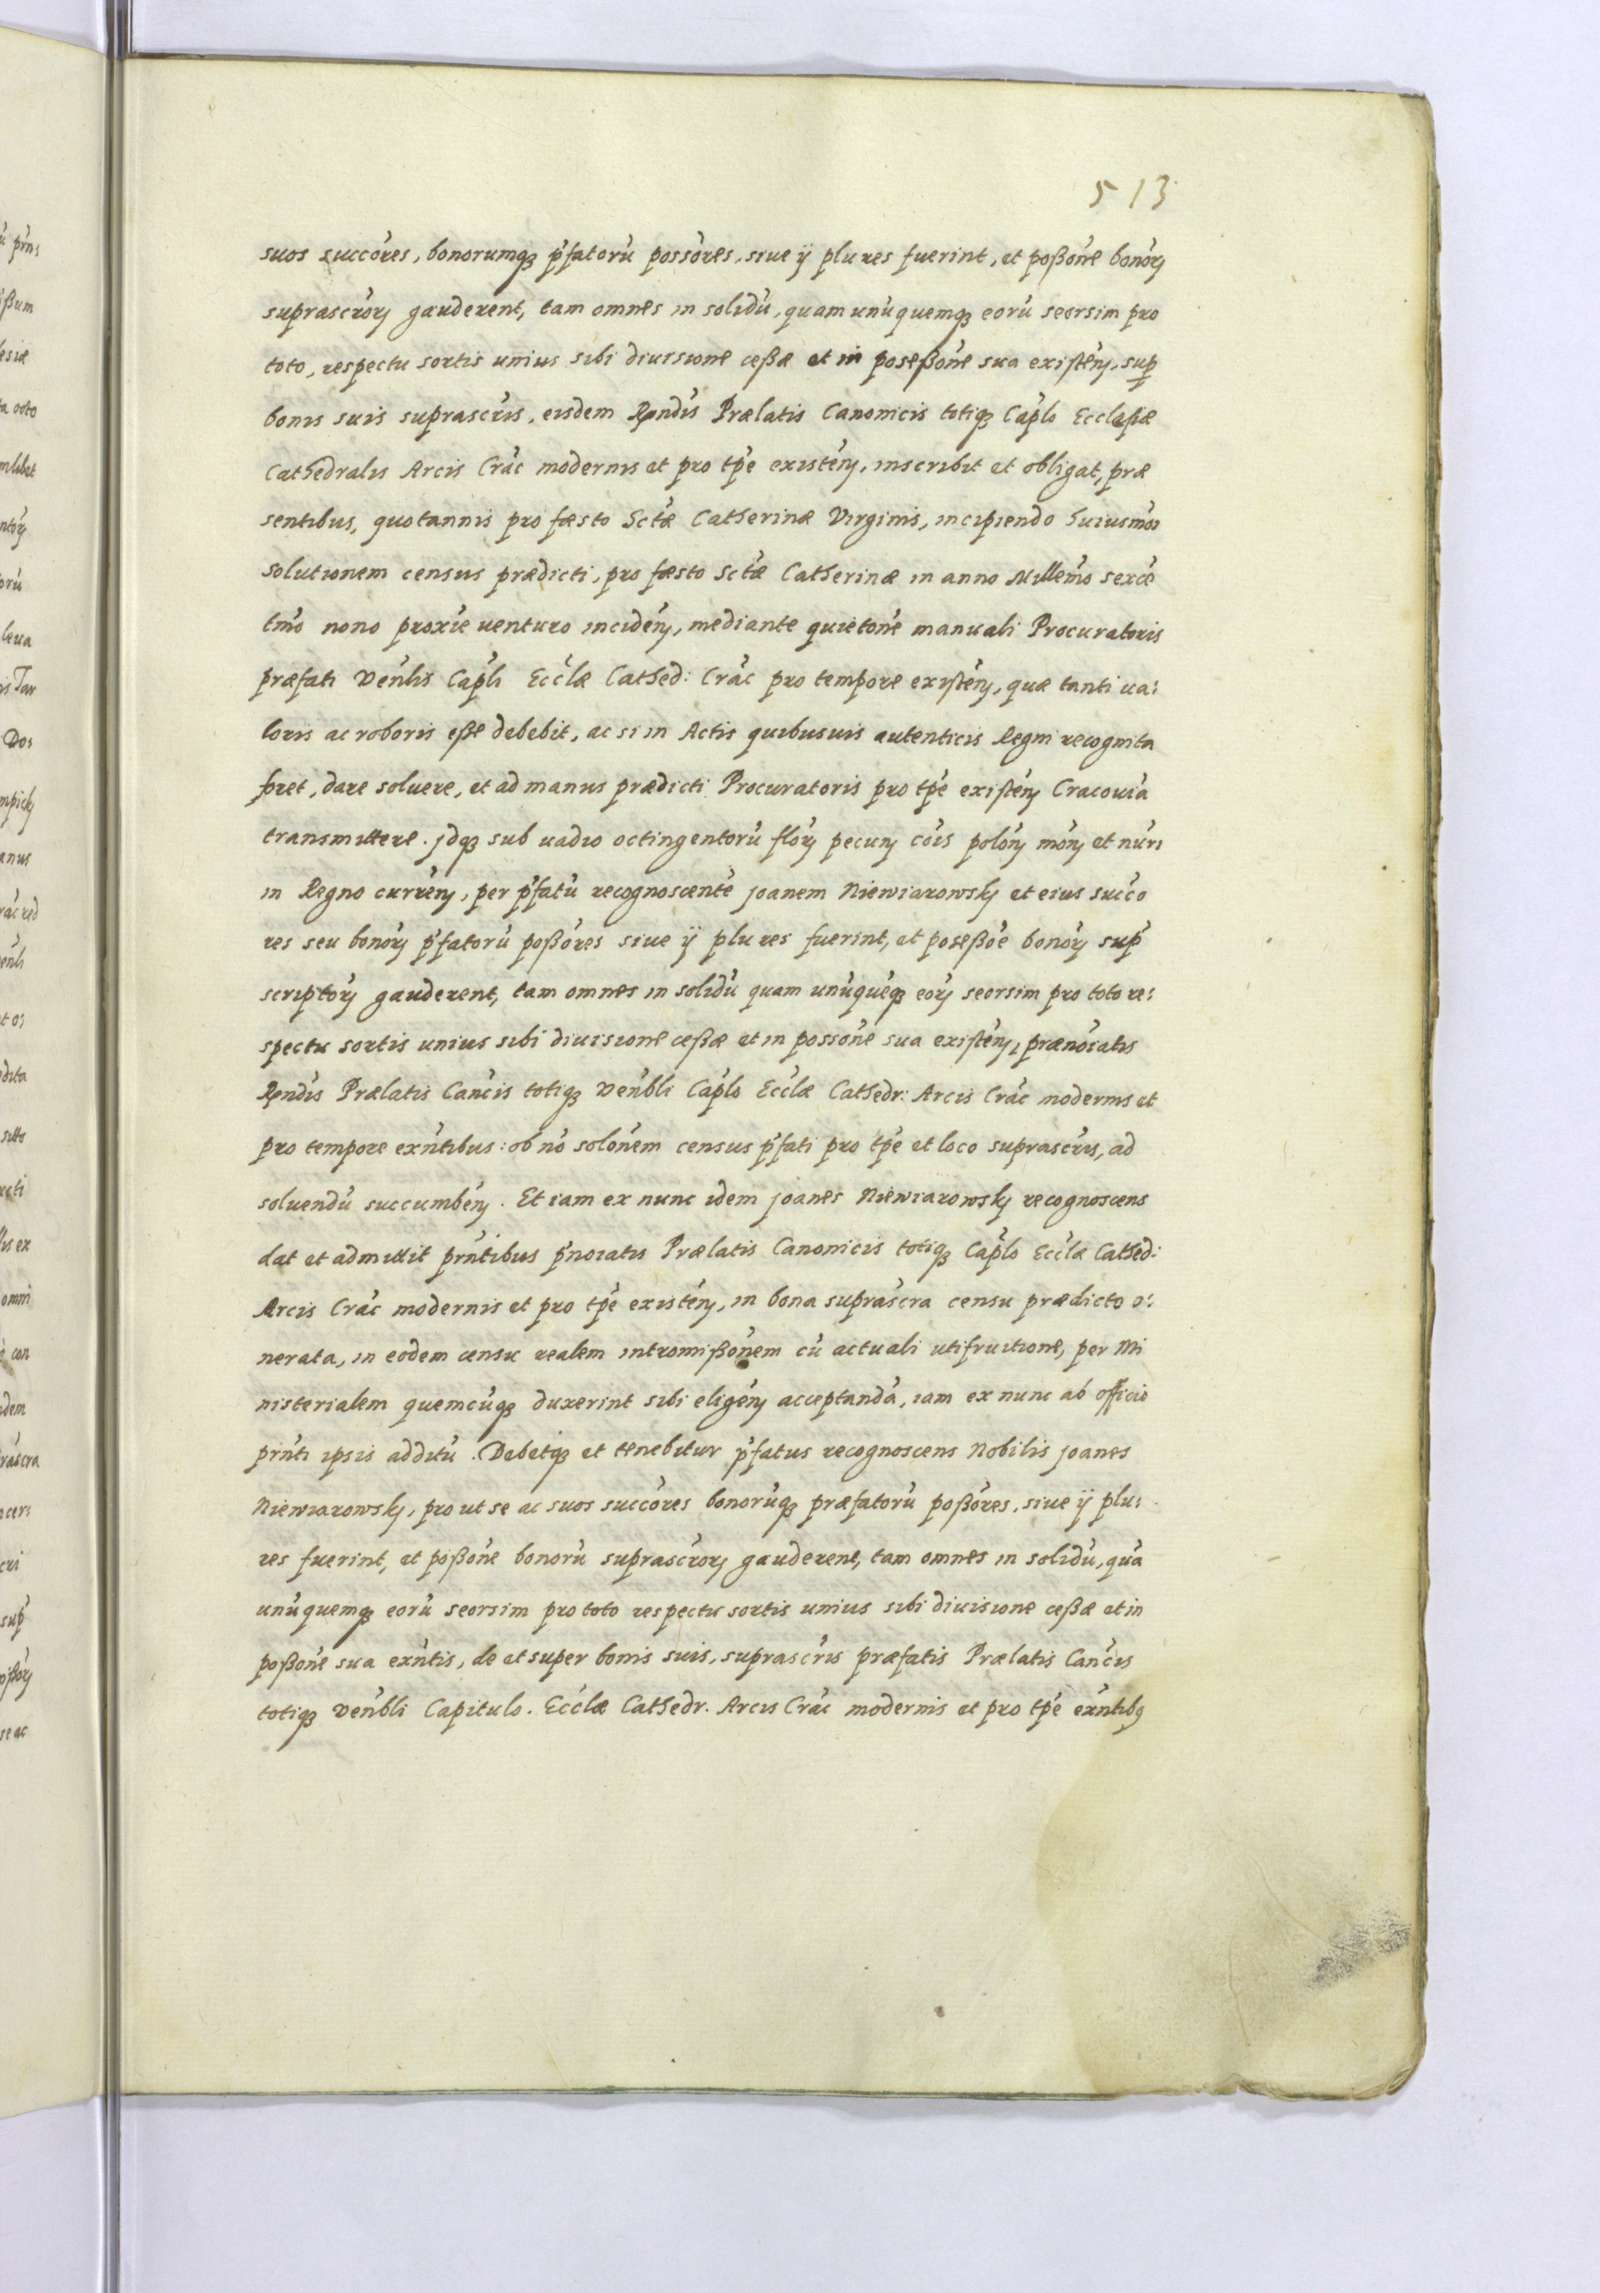 513
suos succóres, bonorumq₃ p̕fatorú possóres, siue ÿ plures fuerint, et poßóne bonórꝫ
suprascrórꝫ gauderent, tam omnes in solidú, quam unúquemq₃ eorú seorsim pro
toto, respectu sortis unius sibi diuisione ceßæ et in poseßóne sua existénꝫ, sup
bonis suis suprascris, eisdem Rndis Prælatis Canonicis totiq₃ Caplo Ecclesiæ
Cathedralis Arcis Crác modernis et pro tpé existénꝫ, inscribit et obligat, præ
sentibus, quotannis pro fæsto Sctæ Catherinæ Virginis, incipiendo huiusmói
solutionem census prædicti, pro fæsto Sctæ Catherinæ in anno Millemó sexcé
tmó nono proxie uenturo incidénꝫ, mediante quietóne manuali Procuratoris
præfati Venlis Capli Ecclæ Cathed: Crác pro tempore existénꝫ, quæ tanti ua:
loris ac roboris eße debebit, ac si in Actis quibusuis autenticis Regni recognita
foret, dare soluere, et ad manus prædicti Procuratoris pro tpé existénꝫ Cracouiá
transmittere. jdq₃ sub uadio octingentorú flórꝫ pecunꝫ cóis polónꝫ mónꝫ et núri
in Regno currénꝫ, per p̕fatú recognoscenté joanem Niewiarowskj et eius succo
res seu bonórꝫ p̕fatorú poßóres siue ÿ plures fuerint, et poseßóe bonórꝫ sup̕
scriptórꝫ gauderent, tam omnes in solidú quam unúquéq₃ eorꝫ seorsim pro toto re:
spectu sortis unius sibi diuisione ceßæ et in possóne sua existénꝫ, prænóiatis
Rndis Prælatis Cancis totiq₃ Venbli Caplo Ecclæ Cathedr: Arcis Crác modernis et
pro tempore exńtibus: ob nó solónem census p̕fati pro tpé et loco suprascris, ad
soluendú succumbénꝫ. Et iam ex nunc idem joanes Niewiarowskj recognoscens
dat et admittit prńtibus p̕noiatis Prælatis Canonicis totiq₃ Caplo Ecclæ Cathed:
Arcis Crác modernis et pro tpé existénꝫ, in bona suprascra censu prædicto o:
nerata, in eodem censu realem intromißónem cú actuali utifruitione, per Mi
nisterialem quemcúq₃ duxerint sibi eligénꝫ acceptandá, iam ex nunc ab officio
prńti ipsis additú. Debetq₃ et tenebitur p̕fatus recognoscens Nobilis joanes
Niewiarowskj, pro ut se ac suos succóres bonorúq₃ præfatorú poßóres, siue ÿ plu:
res fuerint, et poßóne bonorú suprascrorꝫ gauderent, tam omnes in solidú, quá
unúquemq₃ eorú seorsim pro toto respectu sortis unius sibi diuisione ceßæ et in
poßóne sua exńtis, de et super bonis suis, suprascris præfatis Prælatis Cancis
totiq₃ Venbli Capitulo. Ecclæ Cathedr. Arcis Crác modernis et pro tpé exńtibꝫ